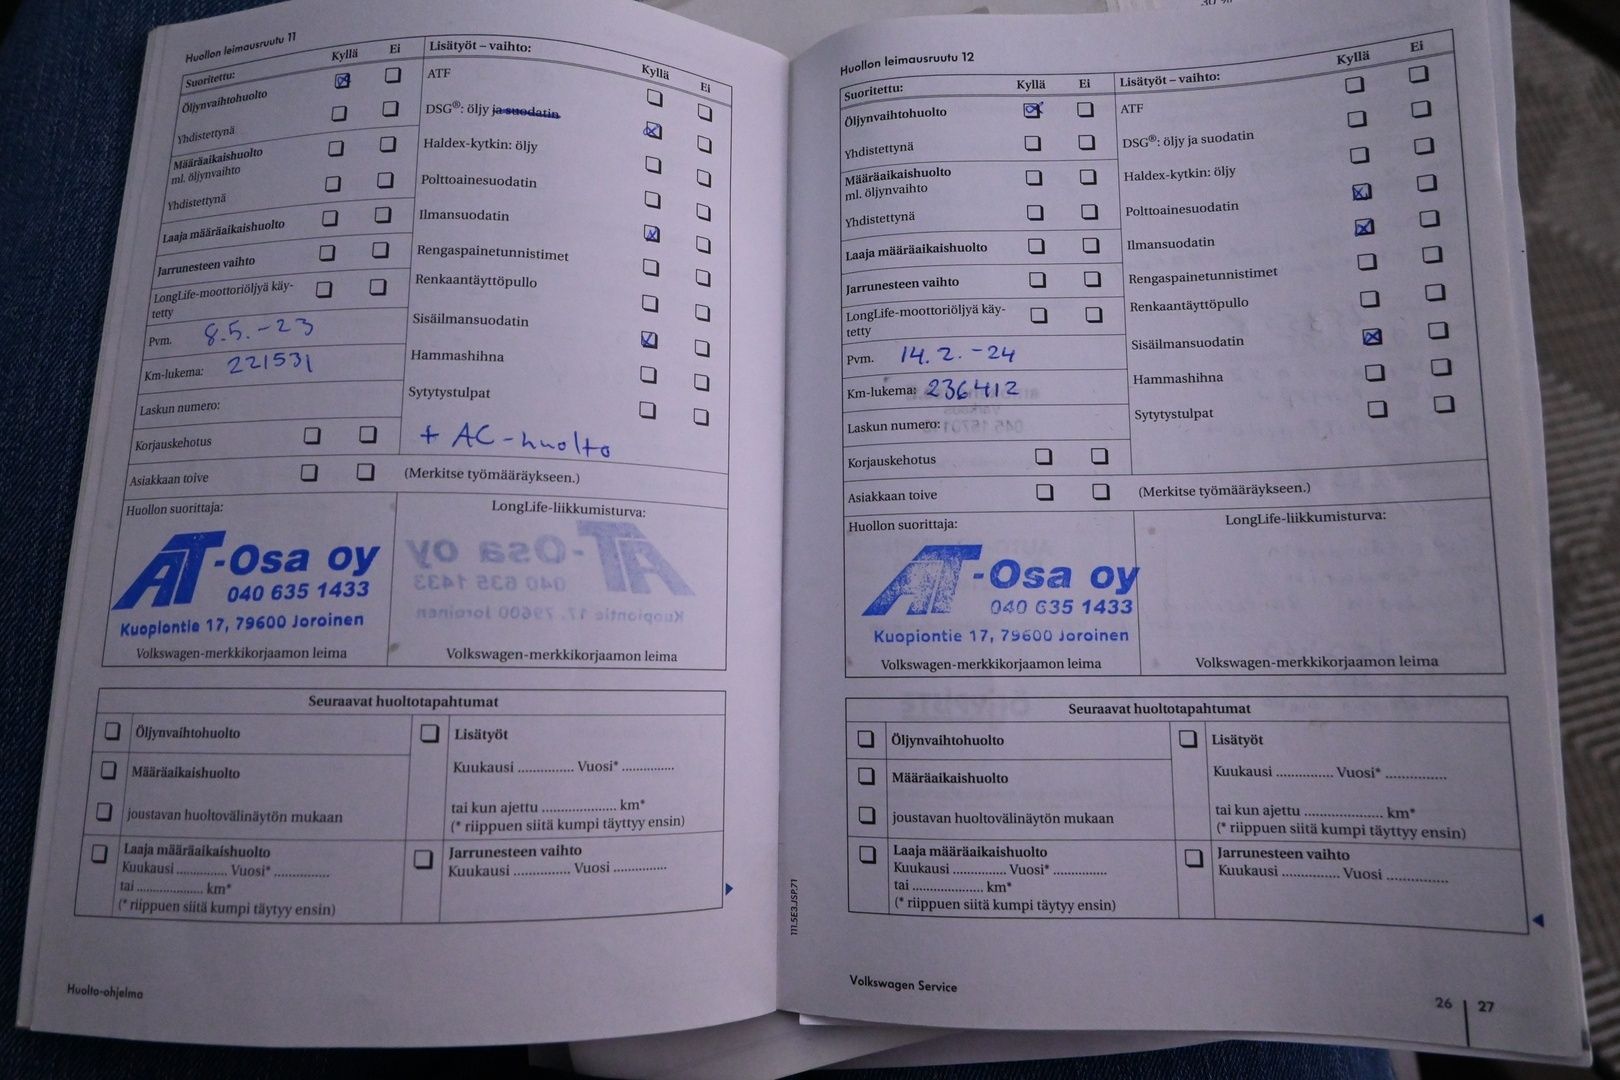 Huollon leimausruutu 11
Suoritettu: Kyllä Ei
Öljynvaihtohuolto
Yhdistettynä
Määräaikaishuolto
ml. öljynvaihto
Yhdistettynä
Laaja määräaikaishuolto
Jarrunesteen vaihto
LongLife-moottoriöljyä käy-
tetty
Pvm. 8.5.-23
Km-lukema: 221531
Laskun numero:
Korjauskehotus
Asiakkaan toive
Lisätyöt – vaihto: Kyllä Ei
ATF
DSG®: öljy ja suodatin
Haldex-kytkin: öljy
Polttoainesuodatin
Ilmansuodatin
Rengaspainetunnistimet
Renkaantäyttöpullo
Sisäilmansuodatin
Hammashihna
Sytytystulpat
+ AC-huolto
(Merkitse työmääräykseen.)
Huollon suorittaja:
AT-Osa oy
040 635 1433
Kuopiontie 17, 79600 Joroinen
Volkswagen-merkkikorjaamon leima
LongLife-liikkumisturva:
AT-Osa oy
040 635 1433
Kuopiontie 17, 79600 Joroinen
Volkswagen-merkkikorjaamon leima
Seuraavat huoltotapahtumat
Öljynvaihtohuolto
Määräaikaishuolto
joustavan huoltovälinäytön mukaan
Laaja määräaikaishuolto
Kuukausi .............. Vuosi* ..............
tai .................... km*
(* riippuen siitä kumpi täytyy ensin)
Lisätyöt
Kuukausi .............. Vuosi* ..............
tai kun ajettu .................... km*
(* riippuen siitä kumpi täyttyy ensin)
Jarrunesteen vaihto
Kuukausi .............. Vuosi ..............
Huolto-ohjelma
Huollon leimausruutu 12
Suoritettu: Kyllä Ei
Öljynvaihtohuolto
Yhdistettynä
Määräaikaishuolto
ml. öljynvaihto
Yhdistettynä
Laaja määräaikaishuolto
Jarrunesteen vaihto
LongLife-moottoriöljyä käy-
tetty
Pvm. 14.2.-24
Km-lukema: 236412
Laskun numero:
Korjauskehotus
Asiakkaan toive
Lisätyöt – vaihto: Kyllä Ei
ATF
DSG®: öljy ja suodatin
Haldex-kytkin: öljy
Polttoainesuodatin
Ilmansuodatin
Rengaspainetunnistimet
Renkaantäyttöpullo
Sisäilmansuodatin
Hammashihna
Sytytystulpat
(Merkitse työmääräykseen.)
Huollon suorittaja:
AT-Osa oy
040 635 1433
Kuopiontie 17, 79600 Joroinen
Volkswagen-merkkikorjaamon leima
LongLife-liikkumisturva:
Volkswagen-merkkikorjaamon leima
Seuraavat huoltotapahtumat
Öljynvaihtohuolto
Määräaikaishuolto
joustavan huoltovälinäytön mukaan
Laaja määräaikaishuolto
Kuukausi .............. Vuosi* ..............
tai .................... km*
(* riippuen siitä kumpi täyttyy ensin)
Lisätyöt
Kuukausi .............. Vuosi* ..............
tai kun ajettu .................... km*
(* riippuen siitä kumpi täyttyy ensin)
Jarrunesteen vaihto
Kuukausi .............. Vuosi ..............
111.5E3.JSP.71
Volkswagen Service
26 | 27